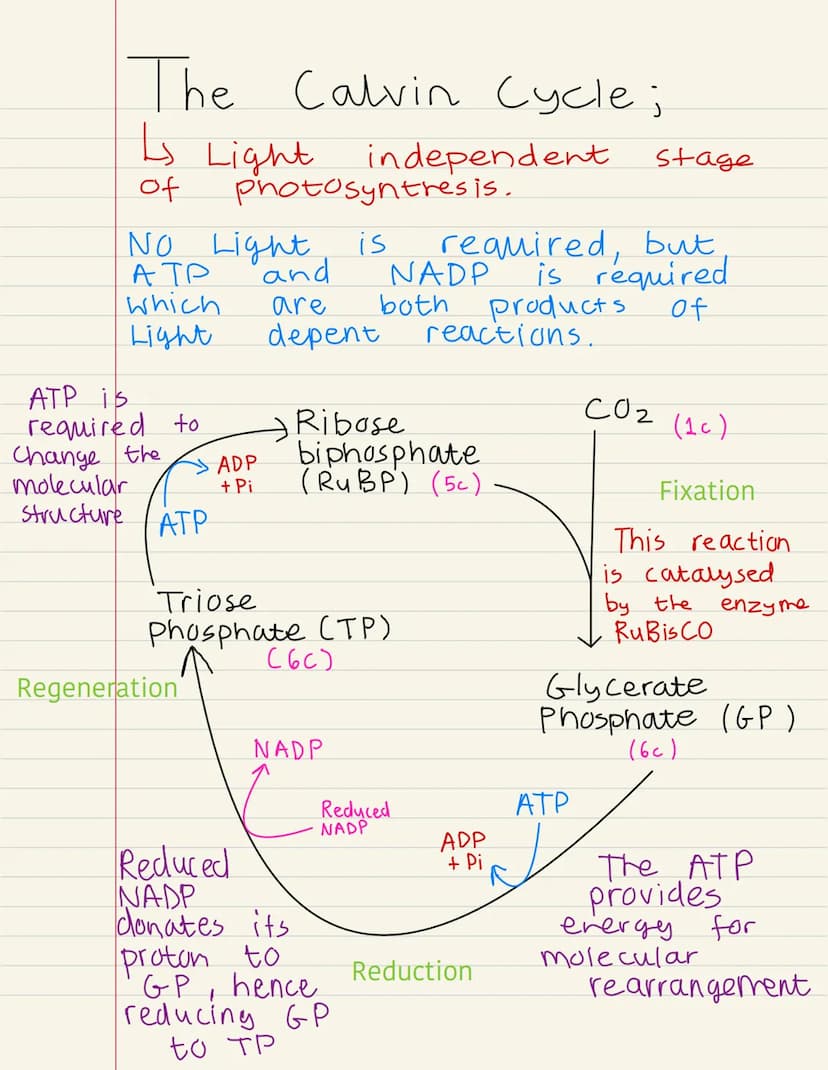 The Calvin Cycle;
↳ Light independent stage
of photosyntresis.
No Light is required, but
ATP and NADP is required
which are both products of
Light depent reactions.
ATP is
required to
change the
molecular
structure
ADP
+ Pi
ATP
Ribose
biphosphate
(RuBP) (5c)
CO2 (1c)
Fixation
This reaction
is catalysed
by the enzyme
RuBisCO
Triose
Phosphate (TP)
(6c)
Regeneration
Glycerate
Phosphate (GP)
(6c)
NADP
Reduced
NADP
ATP
ADP
+ Pi
Reduced
NADP
donates its
proton to
GP, hence
reducing GP
to TP
Reduction
The ATP
provides
energy for
molecular
rearrangement